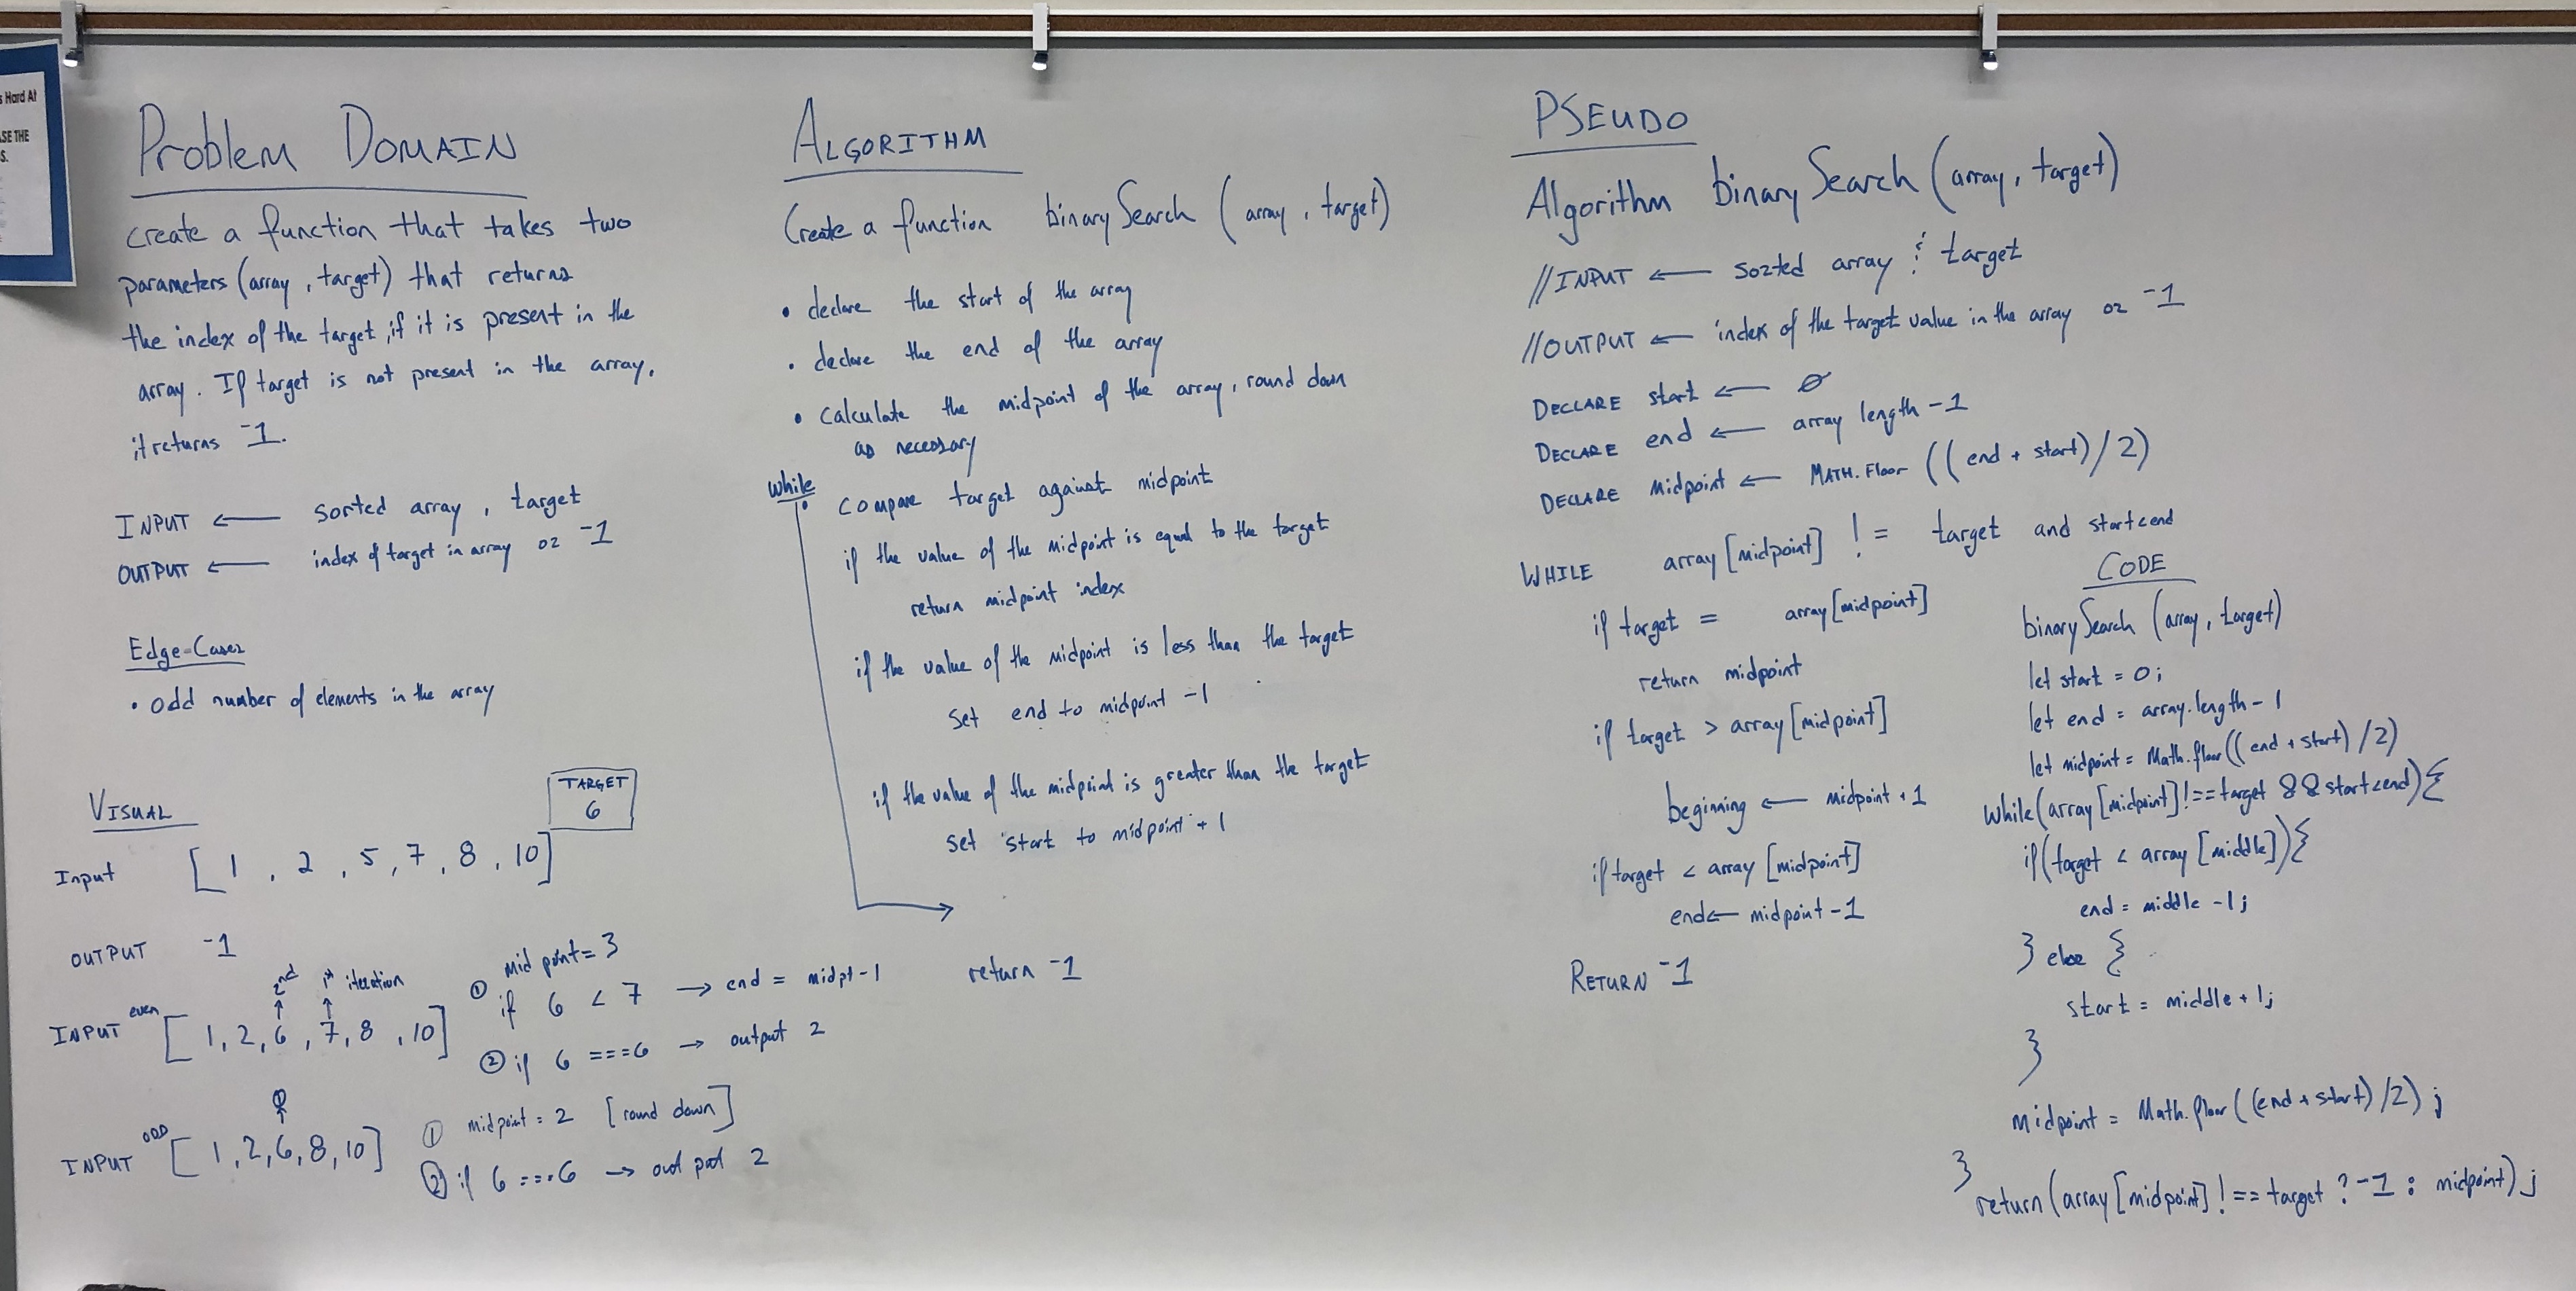 s Hard At
SE THE
S.
Problem DOMAIN
create a function that takes two
parameters (array, target) that returns
the index of the target, if it is present in the
array. If target is not present in the array,
it returns -1.
INPUT ← sorted array, target
OUTPUT ← index of target in array or -1
Edge-Cases
• odd number of elements in the array
VISUAL
TARGET
6
Input [1, 2, 5, 7, 8, 10]
OUTPUT -1
2nd 1st iteration
INPUT even [1, 2, 6, 7, 8, 10]
① mid point = 3
if 6 < 7 → end = midpt-1
② if 6 === 6 → output 2
①
INPUT ODD [1, 2, 6, 8, 10]
① midpoint = 2 [round down]
② if 6 === 6 → output 2
ALGORITHM
Create a function binarySearch (array, target)
• declare the start of the array
• declare the end of the array
• calculate the midpoint of the array, round down
as necessary
While
• compare target against midpoint
if the value of the midpoint is equal to the target
return midpoint index
if the value of the midpoint is less than the target
set end to midpoint -1
if the value of the midpoint is greater than the target
set start to midpoint + 1
return -1
PSEUDO
Algorithm binarySearch (array, target)
//INPUT ← sorted array & target
//OUTPUT ← index of the target value in the array or -1
DECLARE start ← 0
DECLARE end ← array length -1
DECLARE midpoint ← MATH.Floor ((end + start)/2)
WHILE array[midpoint] != target and start<end
if target = array[midpoint]
return midpoint
if target > array[midpoint]
beginning ← midpoint +1
if target < array [midpoint]
end← midpoint -1
RETURN -1
CODE
binarySearch (array, target)
let start = 0;
let end = array.length - 1
let midpoint = Math.floor((end + start)/2)
While(array[midpoint] !== target && start<end){
if(target < array [middle]){
end = middle -1;
} else {
start = middle + 1;
}
midpoint = Math.floor((end + start)/2);
}
return (array[midpoint] !== target ? -1 : midpoint);